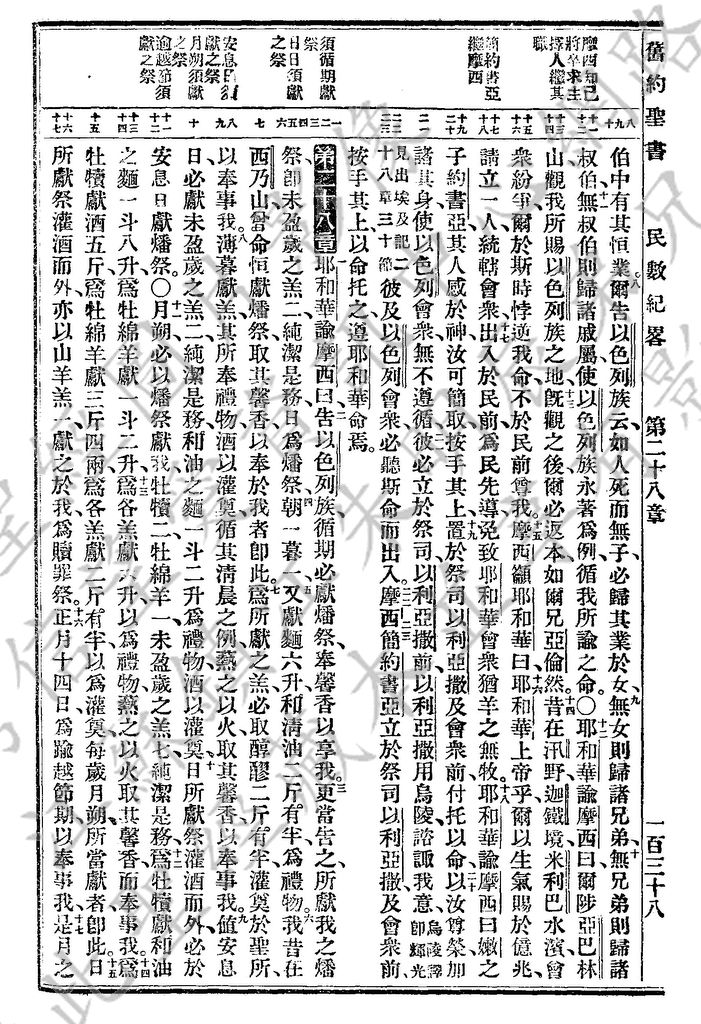 舊約聖書 民數紀畧 第二十八章 一百三十八
摩西知己
將卒求主
擇人繼其
職
簡約書亞
繼摩西
須循期獻
祭
日日須獻
之祭
安息日須
獻之祭
月朔須獻
之祭
逾越節須
獻之祭
伯中有其恒業爾告以色列族云如人死而無子必歸其業於女無女則歸諸兄弟無兄弟則歸諸
叔伯無叔伯則歸諸戚屬使以色列族永著爲例循我所諭之命〇耶和華諭摩西曰爾陟亞巴林
山觀我所賜以色列族之地旣觀之後爾必返本如爾兄亞倫然昔在汛野迦鐵境米利巴水濱會
衆紛爭爾於斯時悖逆我命不於民前尊我摩西籲耶和華曰耶和華上帝乎爾以生氣賜於億兆
請立一人統轄會衆出入於民前爲民先導免致耶和華會衆猶羊之無牧耶和華諭摩西曰嫩之
子約書亞其人感於神汝可簡取按手其上置於祭司以利亞撒及會衆前付托以命以汝尊榮加
諸其身使以色列會衆無不遵循彼必立於祭司以利亞撒前以利亞撒用烏陵諮諏我意烏陵譯卽輝光
見出埃及記二十八章三十節彼及以色列會衆必聽斯命而出入摩西簡約書亞立於祭司以利亞撒及會衆前
按手其上以命托之遵耶和華命焉
第二十八章耶和華諭摩西曰告以色列族循期必獻燔祭奉馨香以享我更當告之所獻我之燔
祭卽未盈歲之羔二純潔是務日爲燔祭朝一暮一又獻麵六升和淸油二斤有半爲禮物我昔在
西乃山嘗命恒獻燔祭取其馨香以奉於我者卽此爲所獻之羔必取醇醪二斤有半灌奠於聖所
以奉事我薄暮獻羔其所奉禮物酒以灌奠循其淸晨之例爇之以火取其馨香以奉事我値安息
日必獻未盈歲之羔二純潔是務和油之麵一斗二升爲禮物酒以灌奠日所獻祭灌酒而外必於
安息日獻燔祭〇月朔必以燔祭獻我牡犢二牡綿羊一未盈歲之羔七純潔是務爲牡犢獻和油
之麵一斗八升爲牡綿羊獻一斗二升爲各羔獻六升以爲禮物爇之以火取其馨香而奉事我爲
牡犢獻酒五斤爲牡綿羊獻三斤四兩爲各羔獻二斤有半以爲灌奠每歲月朔所當獻者卽此日
所獻祭灌酒而外亦以山羊羔一獻之於我爲贖罪祭正月十四日爲踰越節期以奉事我是月之